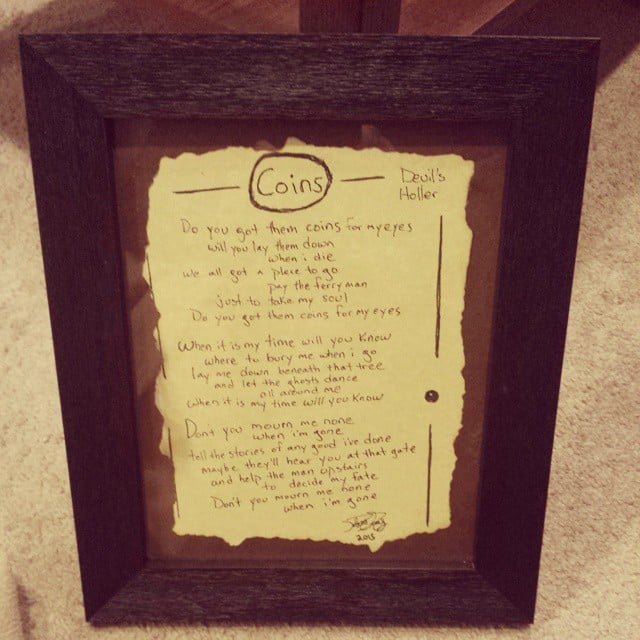 Coins
Devil's
Holler
Do you got them coins for my eyes
will you lay them down
when i die
we all got a place to go
pay the ferryman
just to take my soul
Do you got them coins for my eyes
When it is my time will you know
where to bury me when i go
lay me down beneath that tree
and let the ghosts dance
all around me
when it is my time will you know
Don't you mourn me none
when i'm gone
tell the stories of any good i've done
maybe they'll hear you at that gate
and help the man upstairs
to decide my fate
Don't you mourn me none
when i'm gone
2015